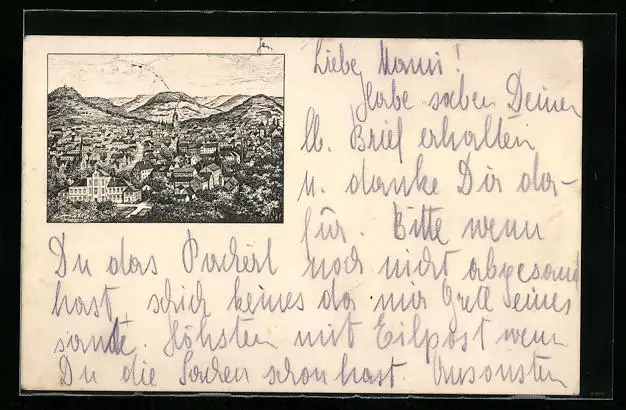 Liebe Mami!
Habe soeben Deinen
lb. Brief erhalten
u. danke Dir da-
für. Bitte wenn
Du das Packerl noch nicht abgesand
hast, schick keines da mir Gretl eines
sandte. Höhsten mit Eilpost wenn
Du die Sachen schon hast. Ansonsten